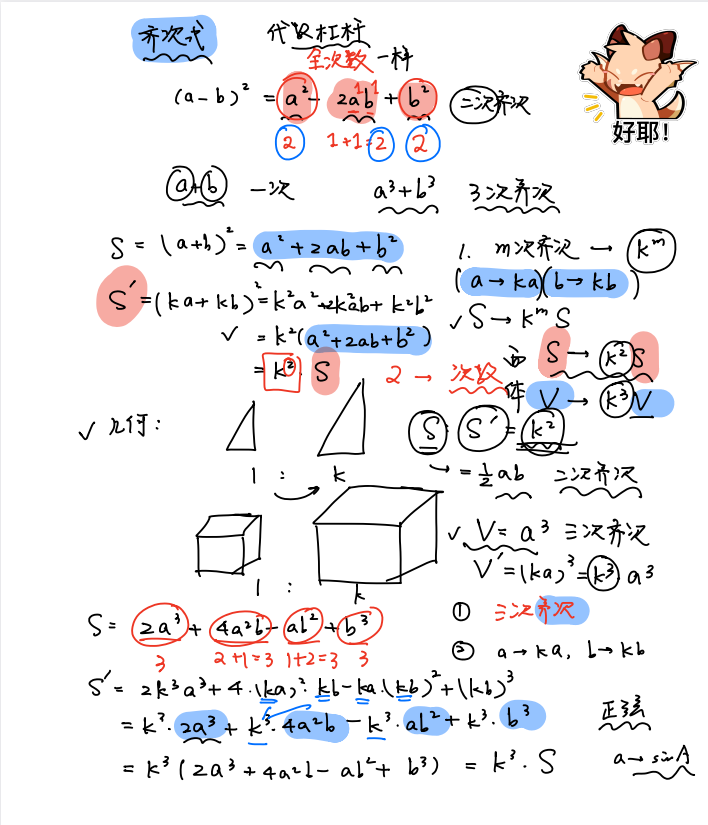 齐次式 代数杠杆
全次数一样
(a-b)² = a² - 2ab + b² 二次齐次
1 1
2 1+1=2 2
a+b 一次 a³+b³ 3次齐次
好耶!
S = (a+b)² = a²+2ab+b²
S' = (ka+kb)² = k²a²+2k²ab+k²b²
✓ = k²(a²+2ab+b²)
= k²·S 2 → 次数
1. m次齐次 → kᵐ
(a→ka)(b→kb)
✓ S→kᵐS
面 S → k²S
体 V → k³V
✓ 几何:
1 : k
S : S' = k²
→ = ½ab 二次齐次
1 : k
✓ V = a³ 三次齐次
V' = (ka)³ = k³·a³
S = 2a³ + 4a²b - ab² + b³
3 2+1=3 1+2=3 3
① 三次齐次
② a→ka, b→kb
S' = 2k³a³ + 4·(ka)²·kb - ka·(kb)² + (kb)³
= k³·2a³ + k³·4a²b - k³·ab² + k³·b³
= k³(2a³+4a²b-ab²+b³) = k³·S
正弦
a→sinA